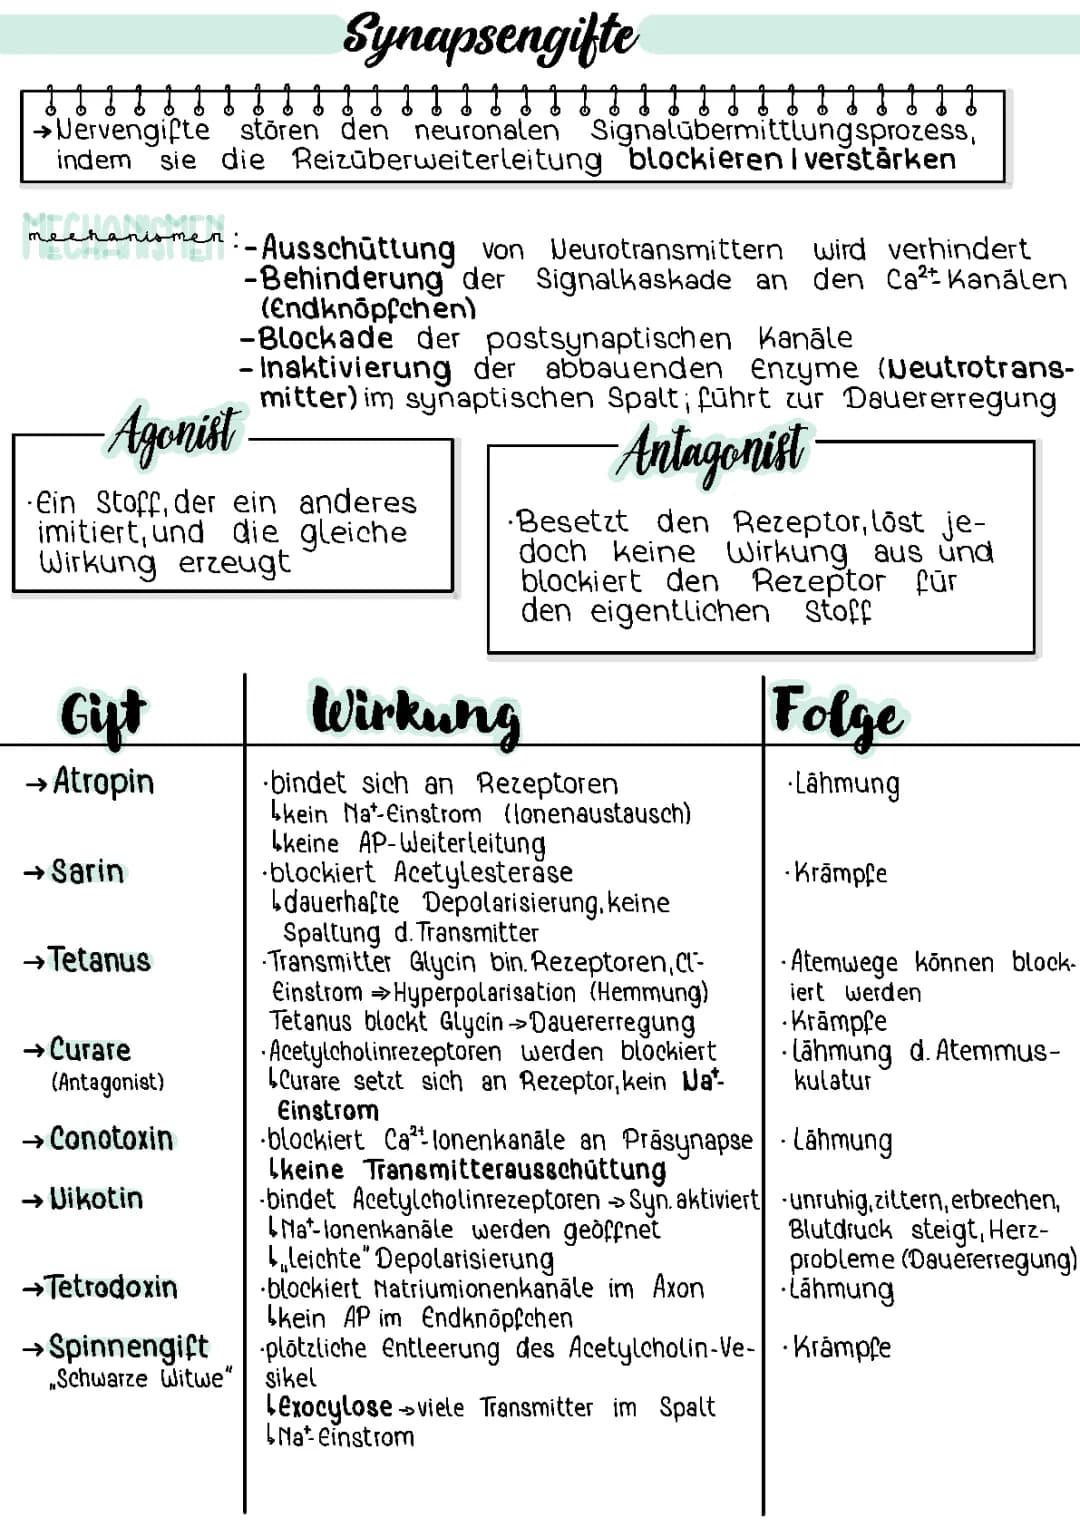 Synapsengifte
→ Nervengifte stören den neuronalen Signalübermittlungsprozess,
indem sie die Reizüberweiterleitung blockieren | verstärken
MECHANISMEN
mechanismen :
- Ausschüttung von Neurotransmittern wird verhindert
- Behinderung der Signalkaskade an den Ca²⁺-Kanälen
(Endknöpfchen)
- Blockade der postsynaptischen Kanäle
- Inaktivierung der abbauenden Enzyme (Neutrotrans-
mitter) im synaptischen Spalt; führt zur Dauererregung
Agonist
· Ein Stoff, der ein anderes
imitiert, und die gleiche
Wirkung erzeugt
Antagonist
· Besetzt den Rezeptor, löst je-
doch keine Wirkung aus und
blockiert den Rezeptor für
den eigentlichen Stoff
Gift Wirkung Folge
→ Atropin
· bindet sich an Rezeptoren
↳ kein Na⁺-Einstrom (Ionenaustausch)
↳ keine AP-Weiterleitung
· Lähmung
→ Sarin
· blockiert Acetylesterase
↳ dauerhafte Depolarisierung, keine
Spaltung d. Transmitter
· Krämpfe
→ Tetanus
· Transmitter Glycin bin. Rezeptoren, Cl⁻-
Einstrom ⇒ Hyperpolarisation (Hemmung)
Tetanus blockt Glycin → Dauererregung
· Atemwege können block-
iert werden
· Krämpfe
→ Curare
(Antagonist)
· Acetylcholinrezeptoren werden blockiert
↳ Curare setzt sich an Rezeptor, kein Na⁺-
Einstrom
· Lähmung d. Atemmus-
kulatur
→ Conotoxin
· blockiert Ca²⁺-Ionenkanäle an Präsynapse
↳ keine Transmitterausschüttung
· Lähmung
→ Nikotin
· bindet Acetylcholinrezeptoren → Syn. aktiviert
↳ Na⁺-Ionenkanäle werden geöffnet
↳ „leichte" Depolarisierung
· unruhig, zittern, erbrechen,
Blutdruck steigt, Herz-
probleme (Dauererregung)
→ Tetrodoxin
· blockiert Natriumionenkanäle im Axon
↳ kein AP im Endknöpfchen
· Lähmung
→ Spinnengift
„Schwarze Witwe"
· plötzliche Entleerung des Acetylcholin-Ve-
sikel
↳ Exocylose → viele Transmitter im Spalt
↳ Na⁺-Einstrom
· Krämpfe